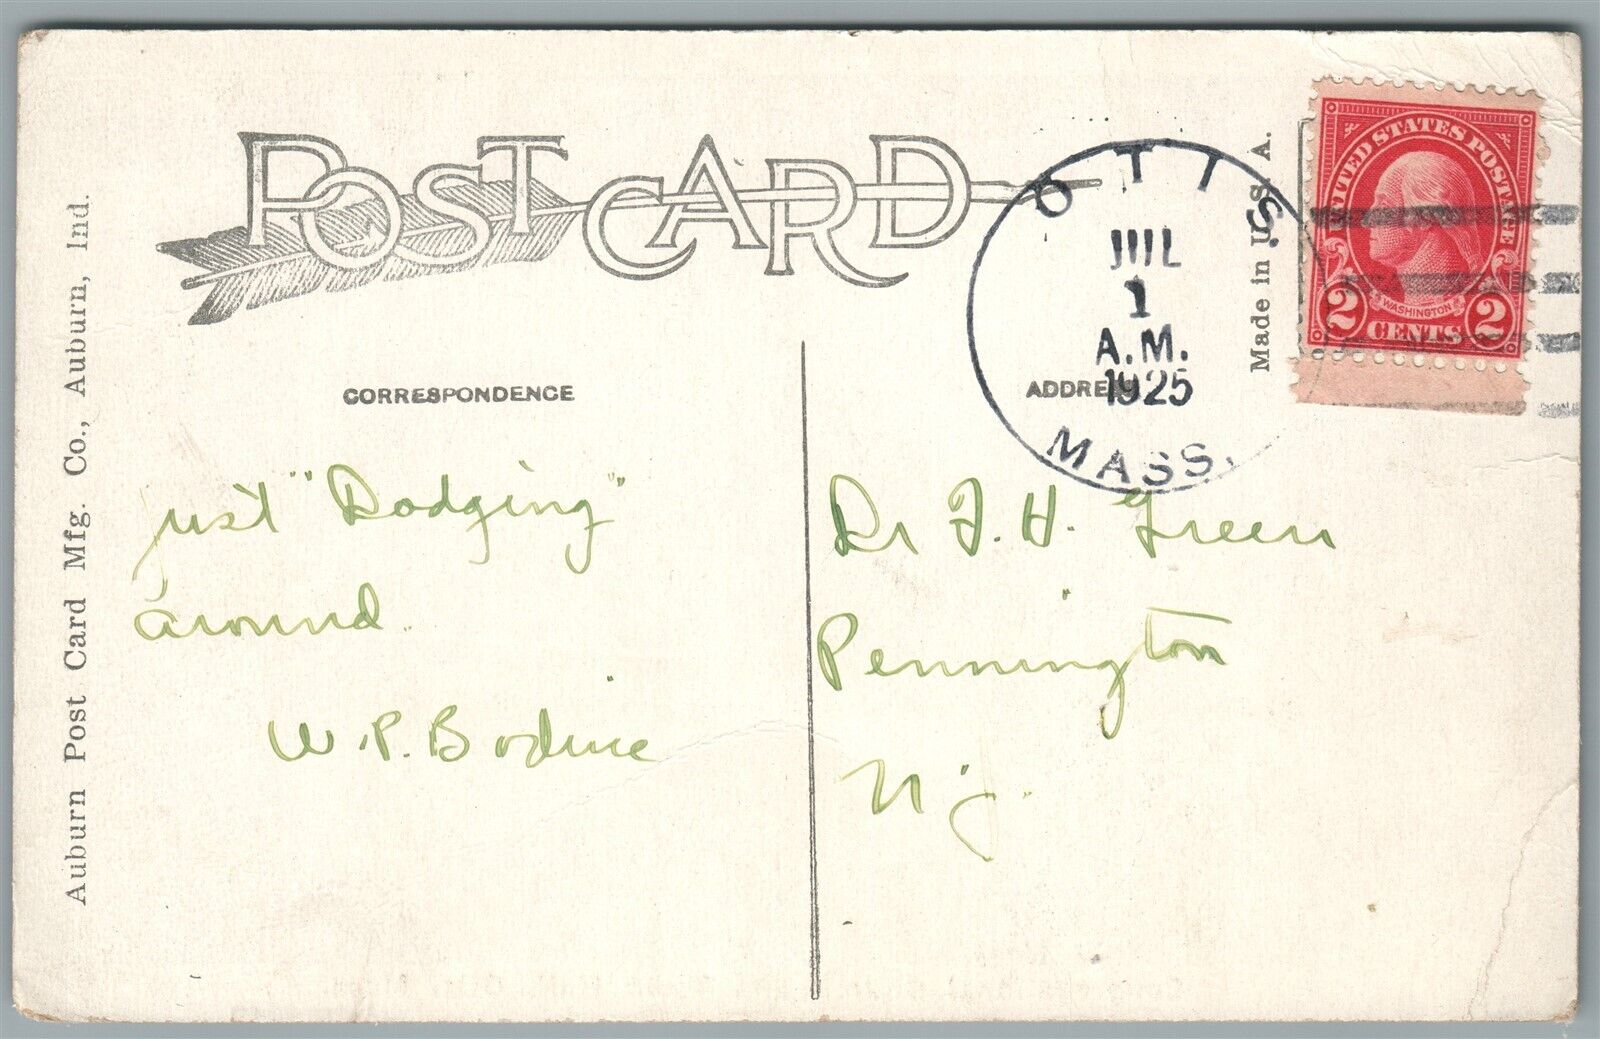 POST CARD
Auburn Post Card Mfg. Co., Auburn, Ind.
Made in U.S.A.
OTIS.
JUL
1
A.M.
1925
MASS.
UNITED STATES POSTAGE
WASHINGTON
2 CENTS 2
CORRESPONDENCE
ADDRESS
just "Dodging"
around.
W.P. Bodine
Dr F. H. Green
Pennington
N.J.